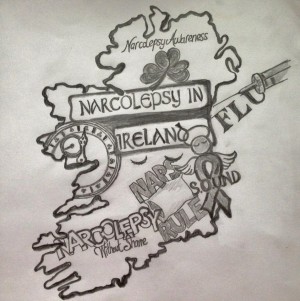 Narcolepsy Awareness
NARCOLEPSY IN
IRELAND
FLU
NAPS
RULE
SOUND
NARCOLEPSY
Without Shame